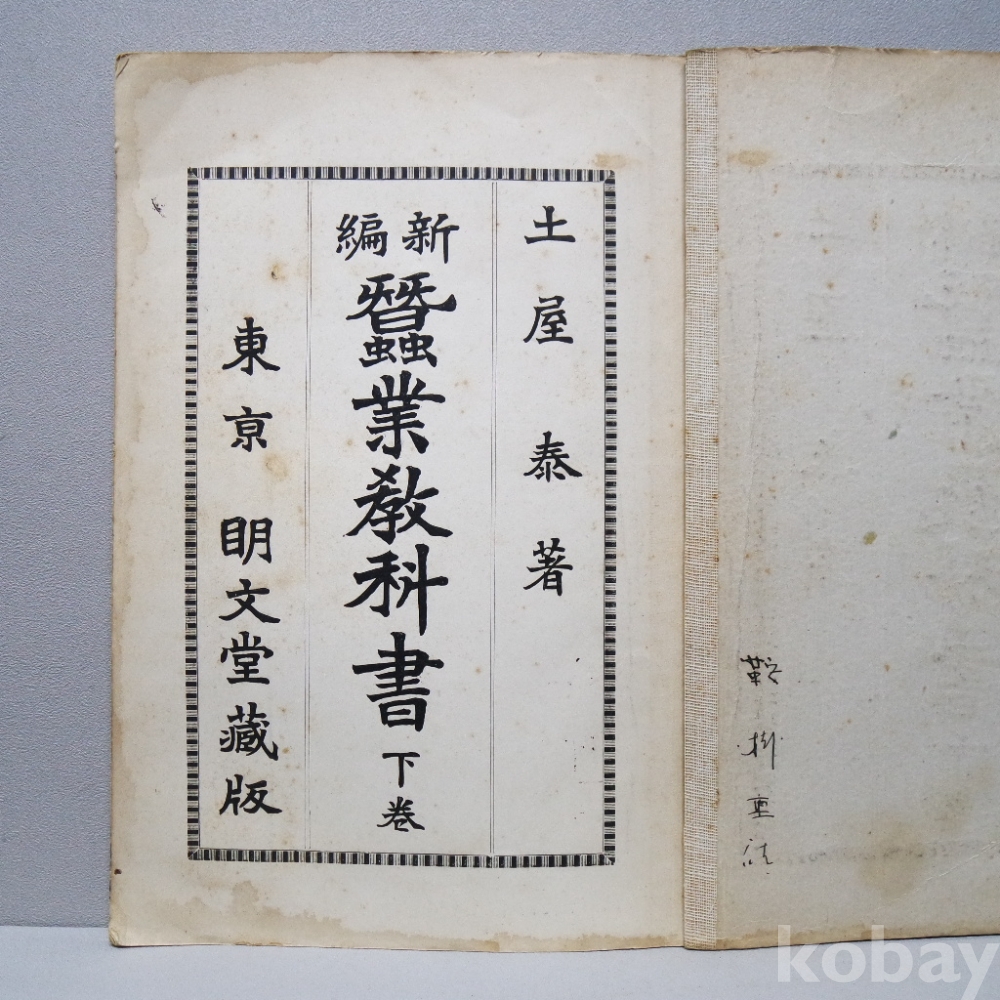 土屋泰著
新編
蠶業教科書 下巻
東京 明文堂藏版
鞍掛重
kobay